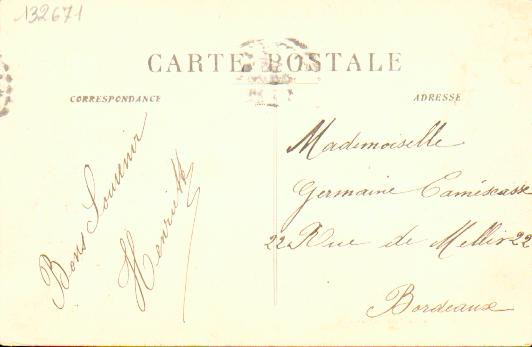 132671
CARTE POSTALE
CORRESPONDANCE
ADRESSE
Bons Souvenir
Henriette
Mademoiselle
Germaine Caméscasse
22 Rue de Mellir 22
Bordeaux